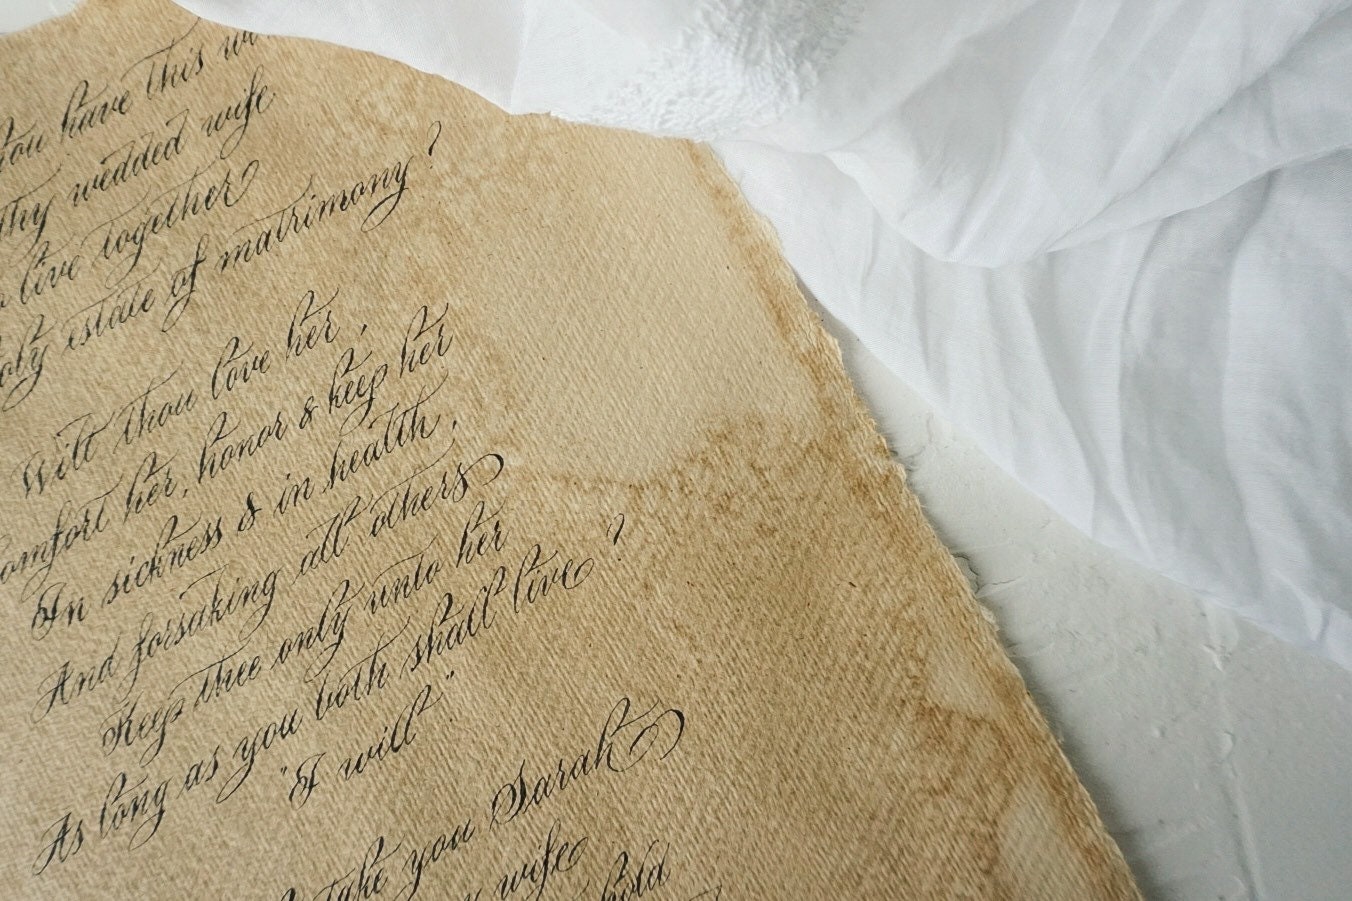 you have this
thy wedded wife
live together
estate of matrimony?
Wilt thou love her,
comfort her, honor & keep her
In sickness & in health,
And forsaking all others
Keep thee only unto her
As long as you both shall live?
"I will"
take you Sarah
wife
hold